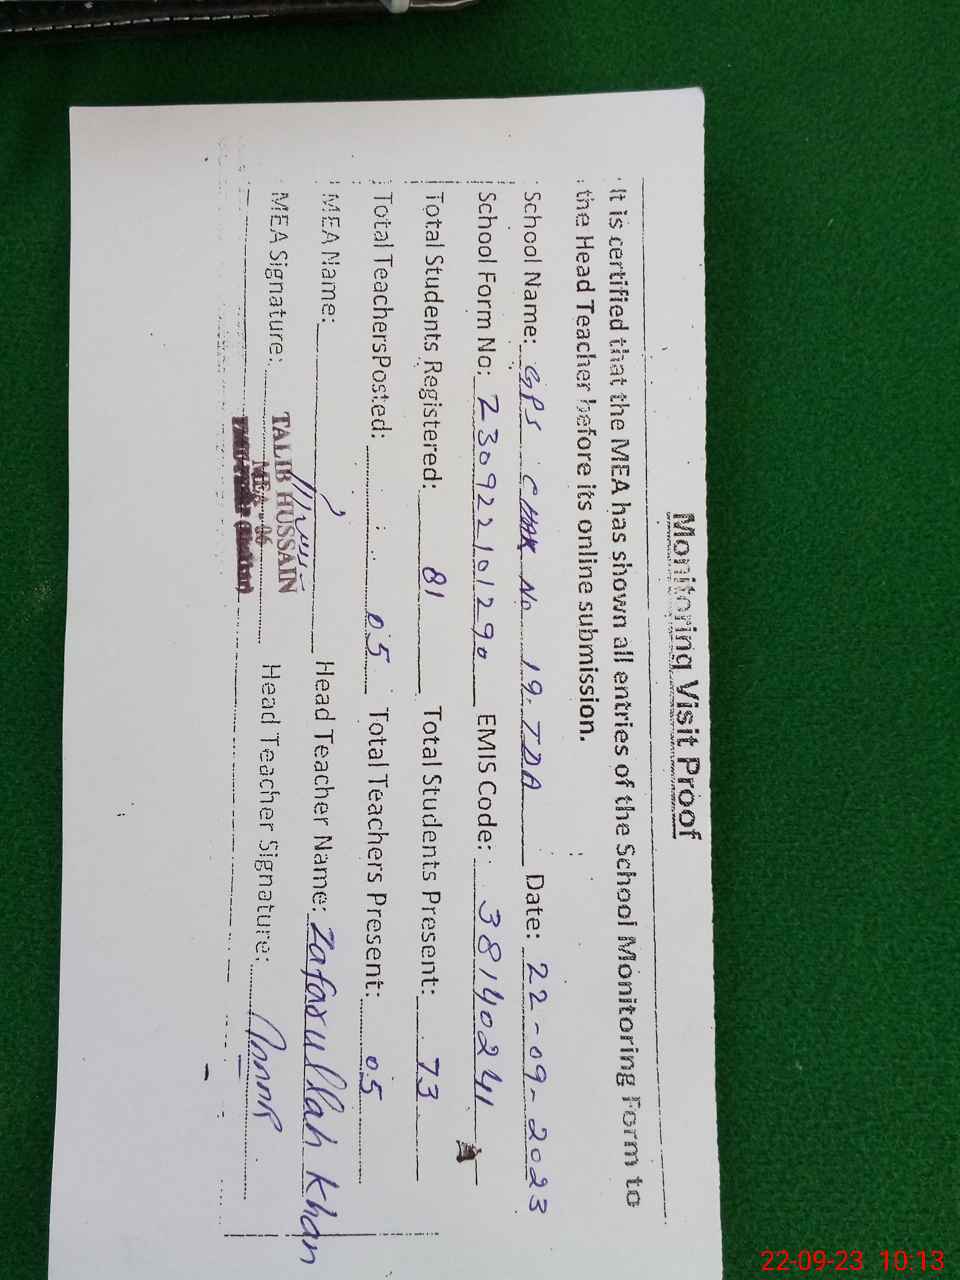 Monitoring Visit Proof
It is certified that the MEA has shown all entries of the School Monitoring Form to
the Head Teacher before its online submission.
School Name: GPS CHAK No 19-TDA Date: 22-09-2023
School Form No: 230922101290 EMIS Code: 38140241
Total Students Registered: 81 Total Students Present: 73
Total TeachersPosted: 05 Total Teachers Present: 05
MEA Name: Head Teacher Name: Zafarullah Khan
MEA Signature: TALIB HUSSAIN Head Teacher Signature:
MEA - 06
22-09-23 10:13